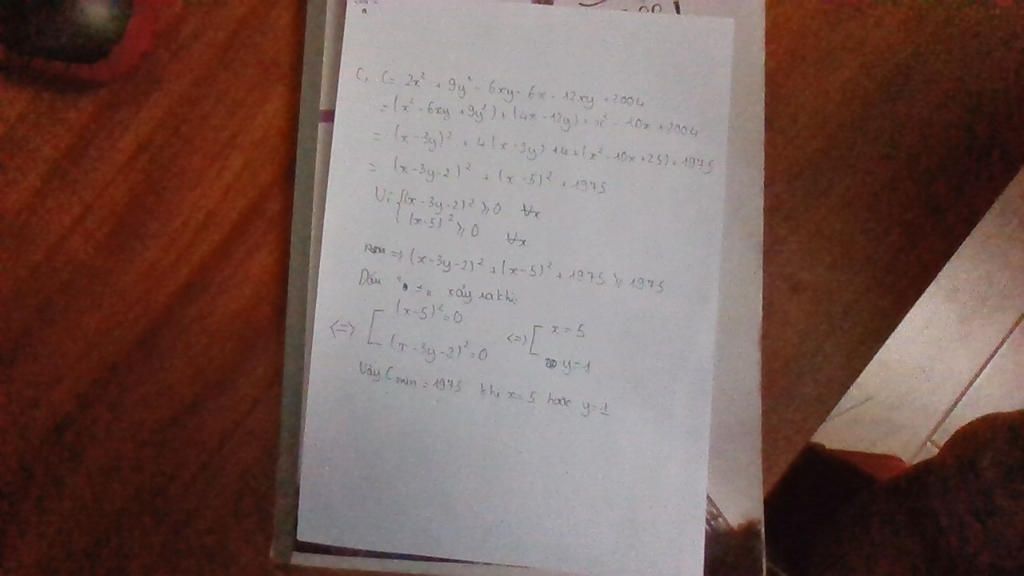 C, C = 2x² + 9y² - 6xy - 6x - 12xy + 2004
= (x² - 6xy + 9y²) + (4x - 12y) + x² - 10x + 2004
= (x - 3y)² + 4(x - 3y) + 4 + (x² - 10x + 25) + 1975
= (x - 3y - 2)² + (x - 5)² + 1975
Vì { (x - 3y - 2)² ⩾ 0 ∀x
(x - 5)² ⩾ 0 ∀x
=> (x - 3y - 2)² + (x - 5)² + 1975 ⩾ 1975
Dấu "=" xảy ra khi
<=> [ (x - 5)² = 0 <=> [ x = 5
(x - 3y - 2)² = 0 y = 1
Vậy Cmin = 1975 khi x = 5 hoặc y = 1